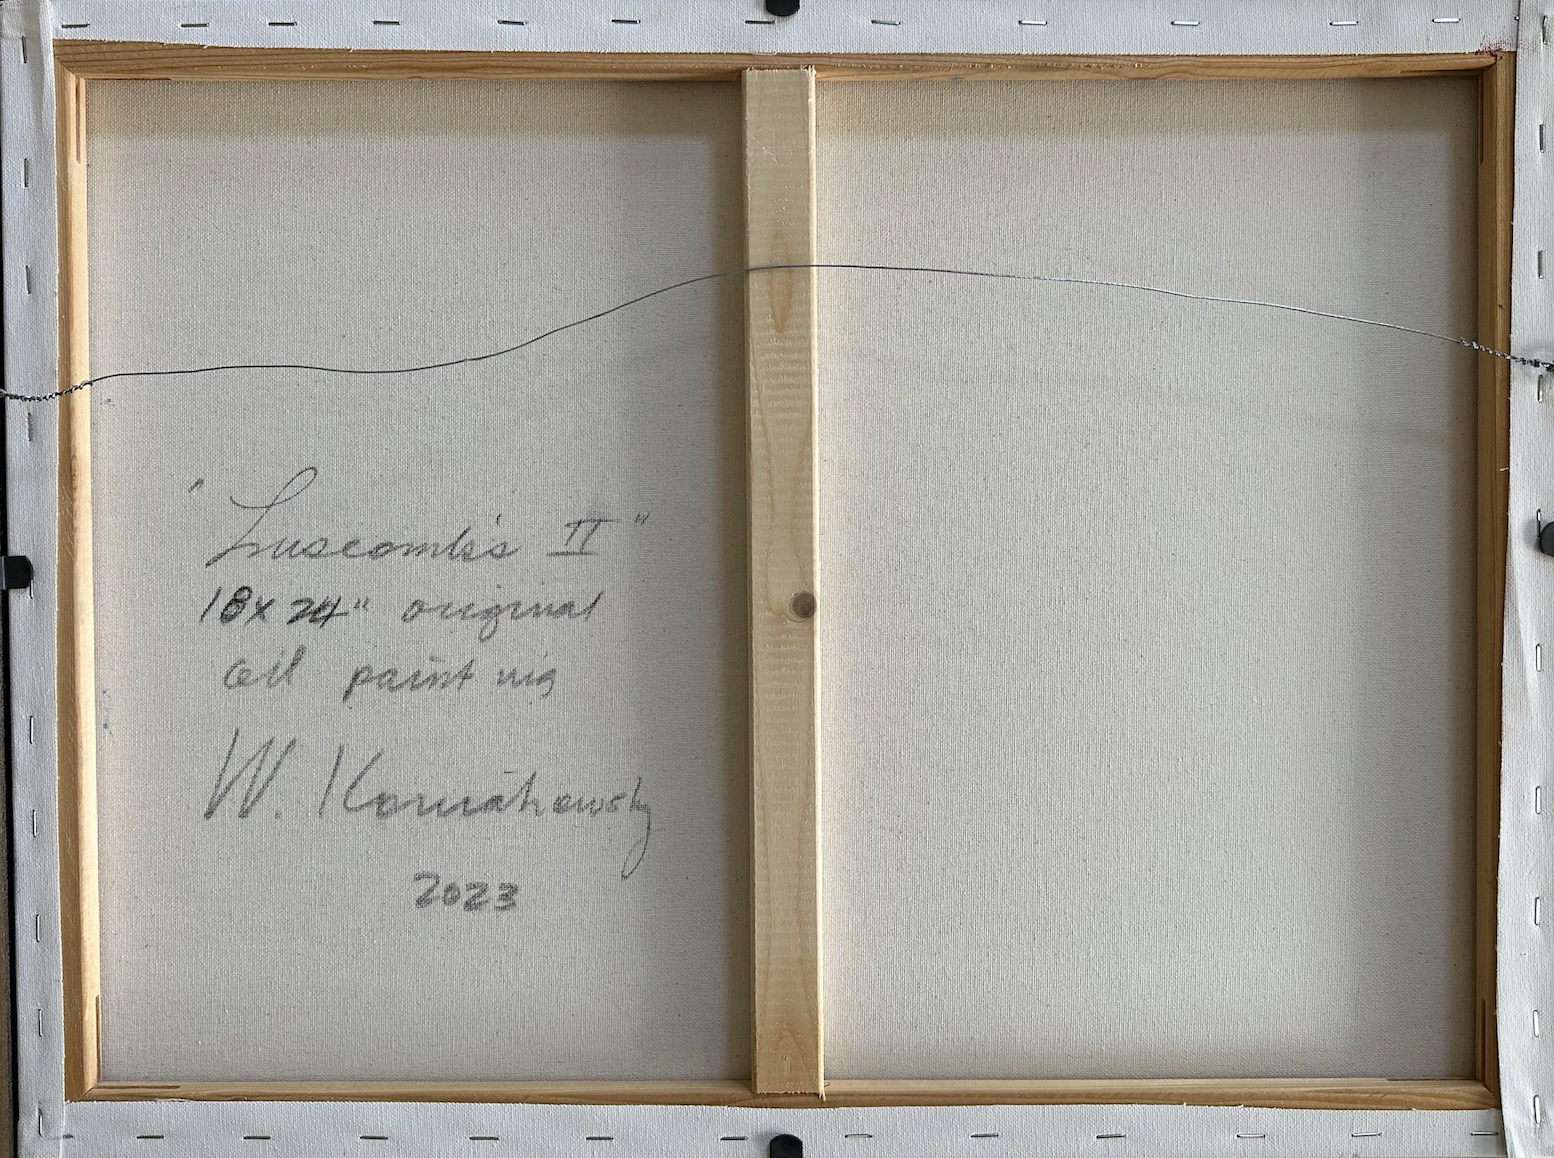 "Luscombe's II"
18x24" original
oil painting
W.
2023